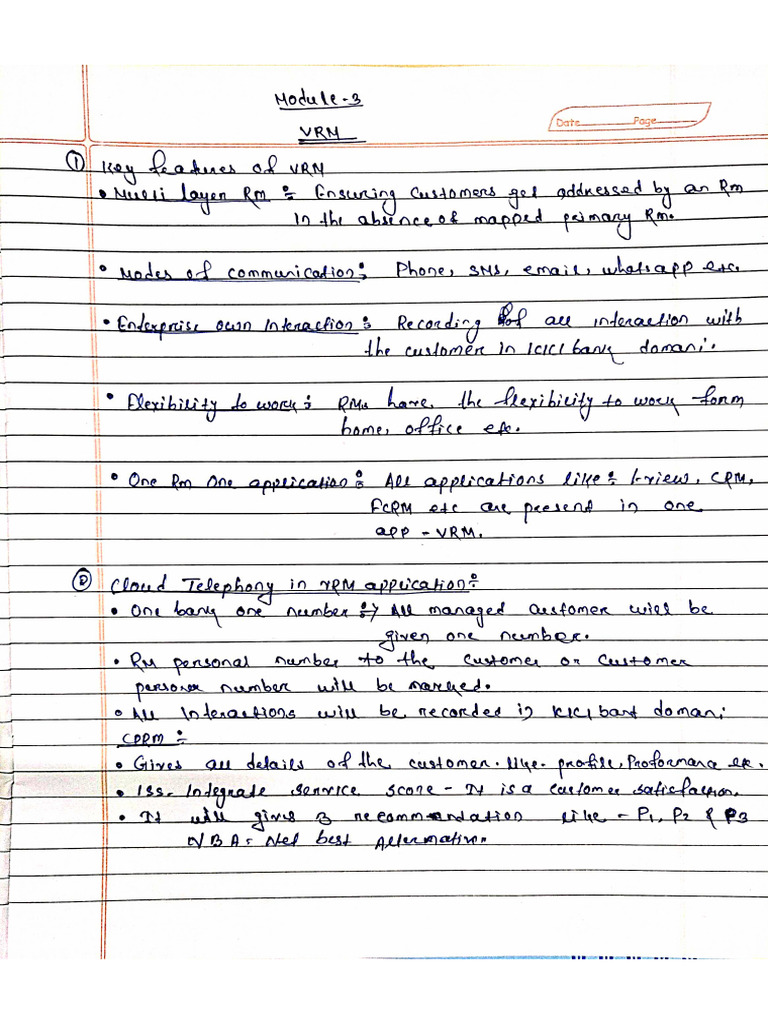 Module-3
Date Page
VRM
① Key features of VRM
• Multi layer Rm ÷ Ensuring Customers get addressed by an Rm
in the absence of mapped primary Rm.
• Modes of communication: Phone, SMS, email, whatsapp etc.
• Enterprise own Interaction: Recording of all interaction with
the customer in ICICI bank domani.
• Flexibility to work: RMs have the flexibility to work form
home, office etc.
• One Rm One application: All applications like ÷ I-view, CRM,
FCRM etc are present in one
app - VRM.
② Cloud Telephony in VRM application ÷
• One bank one number :→ All managed customer will be
given one number.
• RM personal number to the customer or customer
number will be marked.
• All Interactions will be recorded in ICICI bank domani
CPRM ÷
• Gives all details of the customer. like. profile, Proformance etc.
• ISS- Integrate service score - It is a customer satisfaction.
• It will gives 3 recommendation like - P1, P2 & P3
NBA = Net best Alternative.